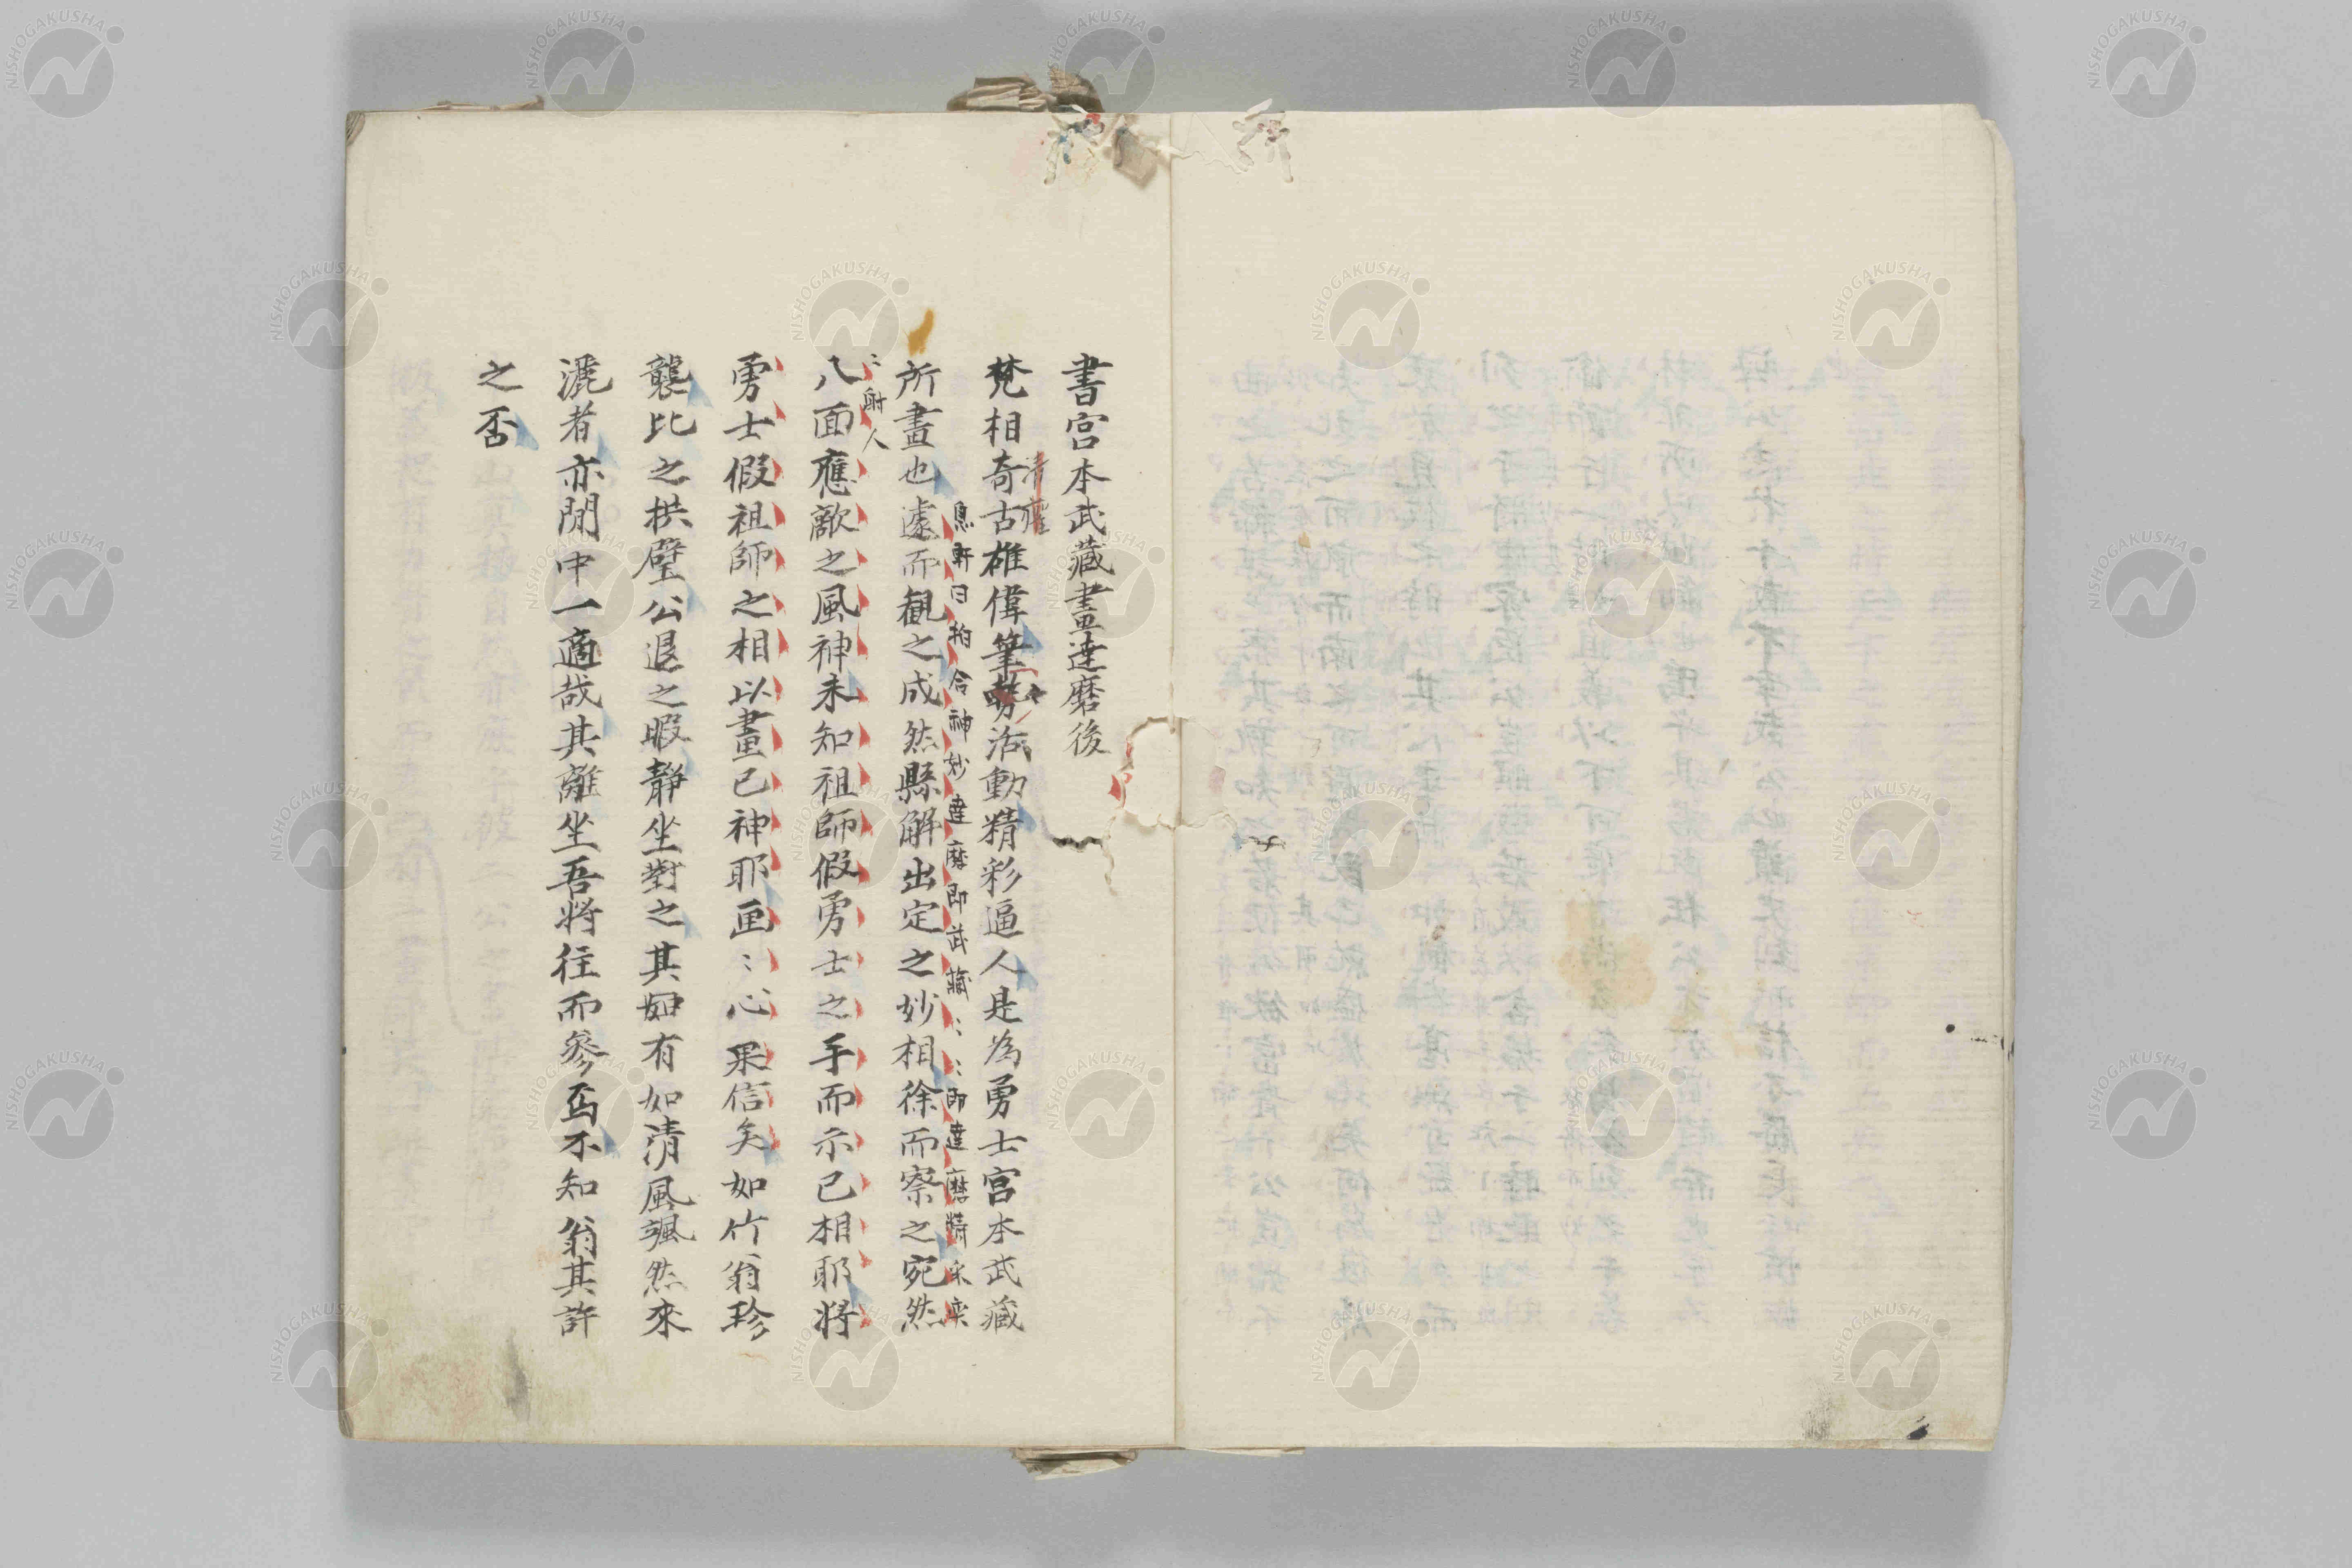 書宮本武藏畫達磨後
梵相奇古雄偉筆勢活動精彩逼人是為勇士宮本武藏
清癯
所畫也遽而観之成然縣解出定之妙相徐而察之宛然
息軒曰拍合神妙達磨即武藏〻〻即達磨精采奕
〻射人
八面應敵之風神未知祖師假勇士之手而示已相耶将
勇士假祖師之相以畫已神耶画〻心果信矣如竹翁珍
襲比之拱璧公退之暇靜坐對之其如有如清風颯然來
灑者亦閒中一適哉其離坐吾将往而參焉不知翁其許
之否
NISHOGAKUSHA